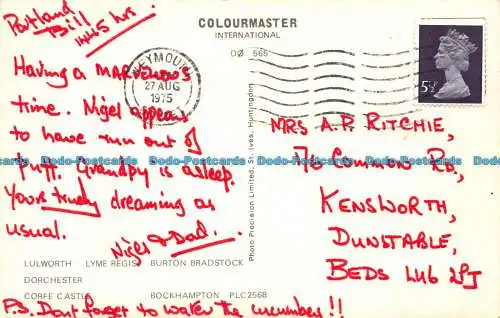 Portland
Bill
1445 hrs.
COLOURMASTER
INTERNATIONAL
DØ 565
WEYMOUTH
27 AUG
1975
5½P
Having a marvellous
time. Nigel appears
to have run out of
puff. Grandpy is asleep.
Yours truly dreaming as
usual.
Nigel & Dad.
Photo Precision Limited, St. Ives, Huntingdon
MRS A.P. RITCHIE,
76 COMMON RD,
KENSWORTH,
DUNSTABLE,
BEDS LU6 2PJ
LULWORTH LYME REGIS BURTON BRADSTOCK
DORCHESTER
CORFE CASTLE BOCKHAMPTON PLC2568
P.S. Dont forget to water the cucumbers!!
Dodo-Postcards Dodo-Postcards Dodo-Postcards Dodo-Postcards Dodo-Postcards Dodo-Postcards